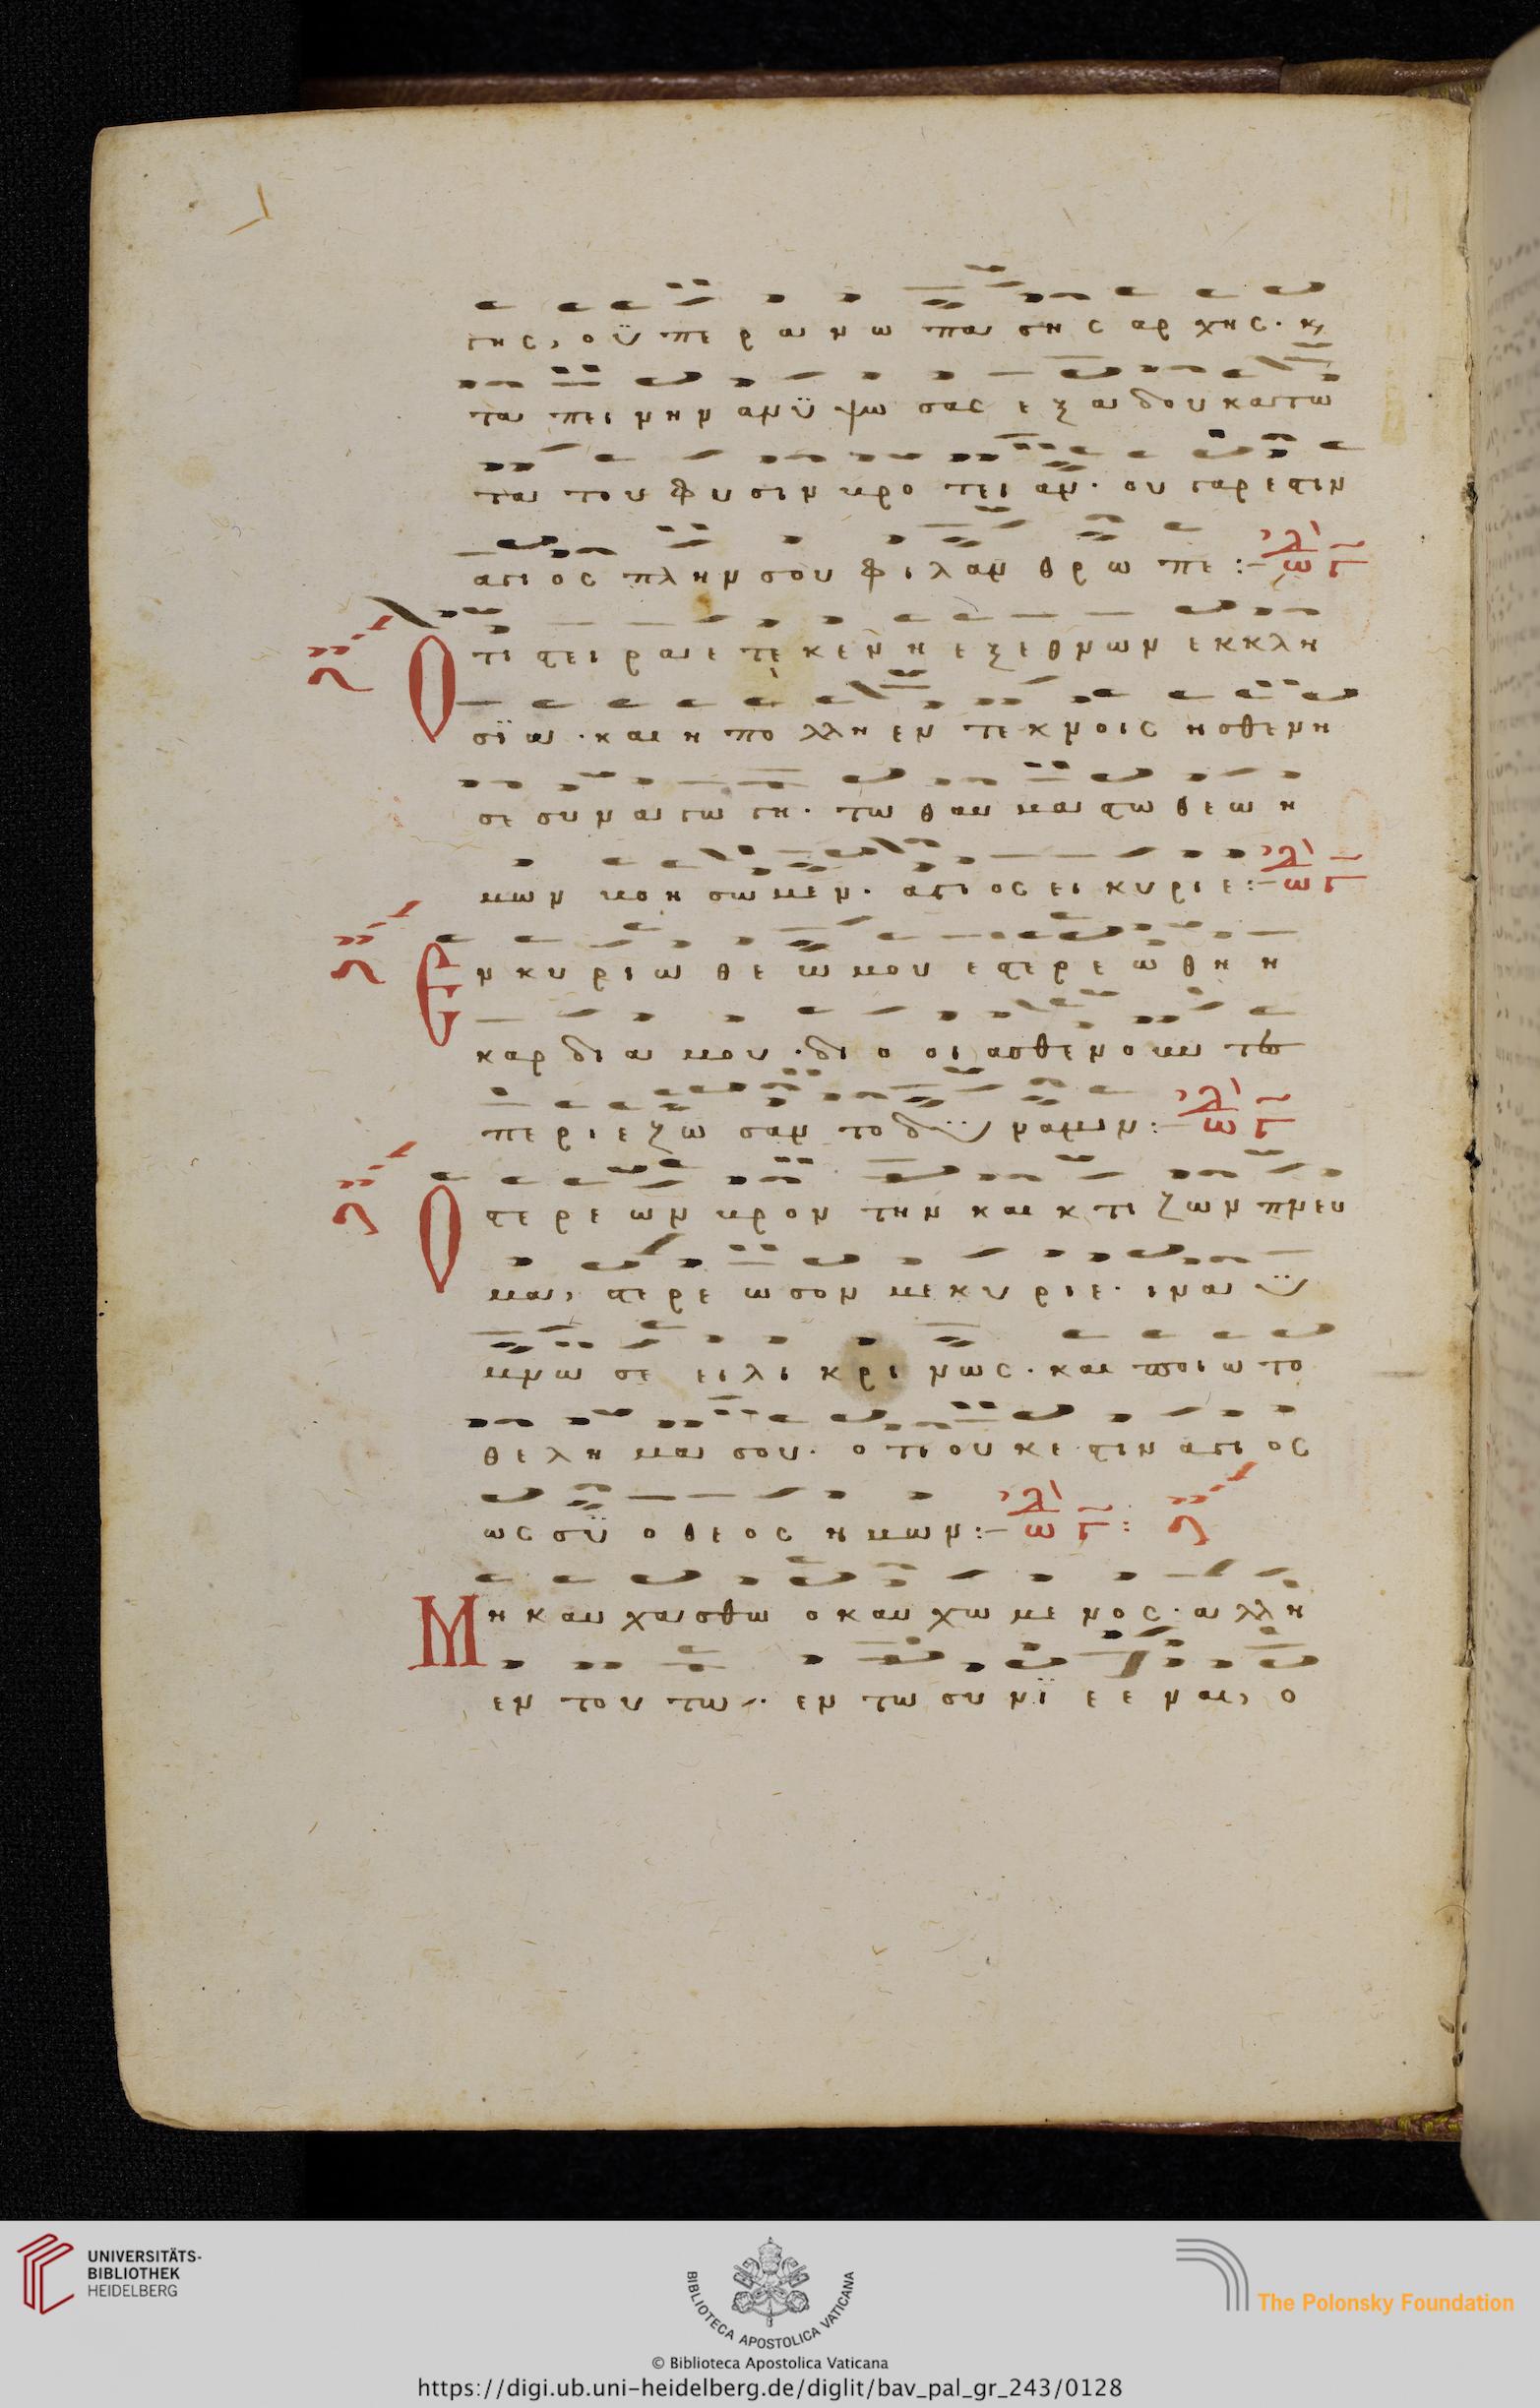 της, ο ϋ πε ρ α ν ω πα ση ς αρ χης · κ,
τα πει νην αν ϋ ψω σας ε ξ α δου κατω
τα του φυ σιν προ τει αν · ου γαρ εστιν
αγι ος πλην σου φι λαν θρω πε :- ωδ γ
Ο τι στει ρα ε τε κεν η ε ξ ε θνων εκκλη
σϊ α · και η πο λλη εν τε κνοις ησθενη
σε συ ν α γω γη · τω θαυ μα στω θεω η
μων βοη σω μεν · αγι ος ει κυριε :- ωδ γ
Ε ν κυ ρι ω θε ω μου εστερε ω θη η
καρ δι α μου · δι ο οι ασθενουν τες
πε ρι ε ζω σαν το δϋ ναμιν :- ωδ γ
Ο στε ρε ων βρον την και κ τι ζων πνευ
μα, στε ρε ω σον με κυ ριε · ινα ϋ
μνω σε ειλι κρι νως · και ποιω το
θε λη μα σου · ο τι ουκ ε στιν αγι ος
ως σϋ ο θε ος η μων :- ωδ γ :
Μ η καυ χασθω ο καυ χω με νος · α λλη
εν του τω · εν τω συ νϊ ε ε ναι, ο
UNIVERSITÄTS-
BIBLIOTHEK
HEIDELBERG
BIBLIOTECA APOSTOLICA VATICANA
The Polonsky Foundation
© Biblioteca Apostolica Vaticana
https://digi.ub.uni-heidelberg.de/diglit/bav_pal_gr_243/0128